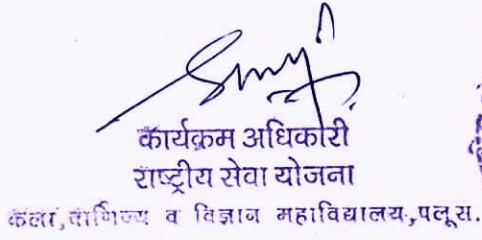 कार्यक्रम अधिकारी
राष्ट्रीय सेवा योजना
कला,वाणिज्य व विज्ञान महाविद्यालय,पलूस.